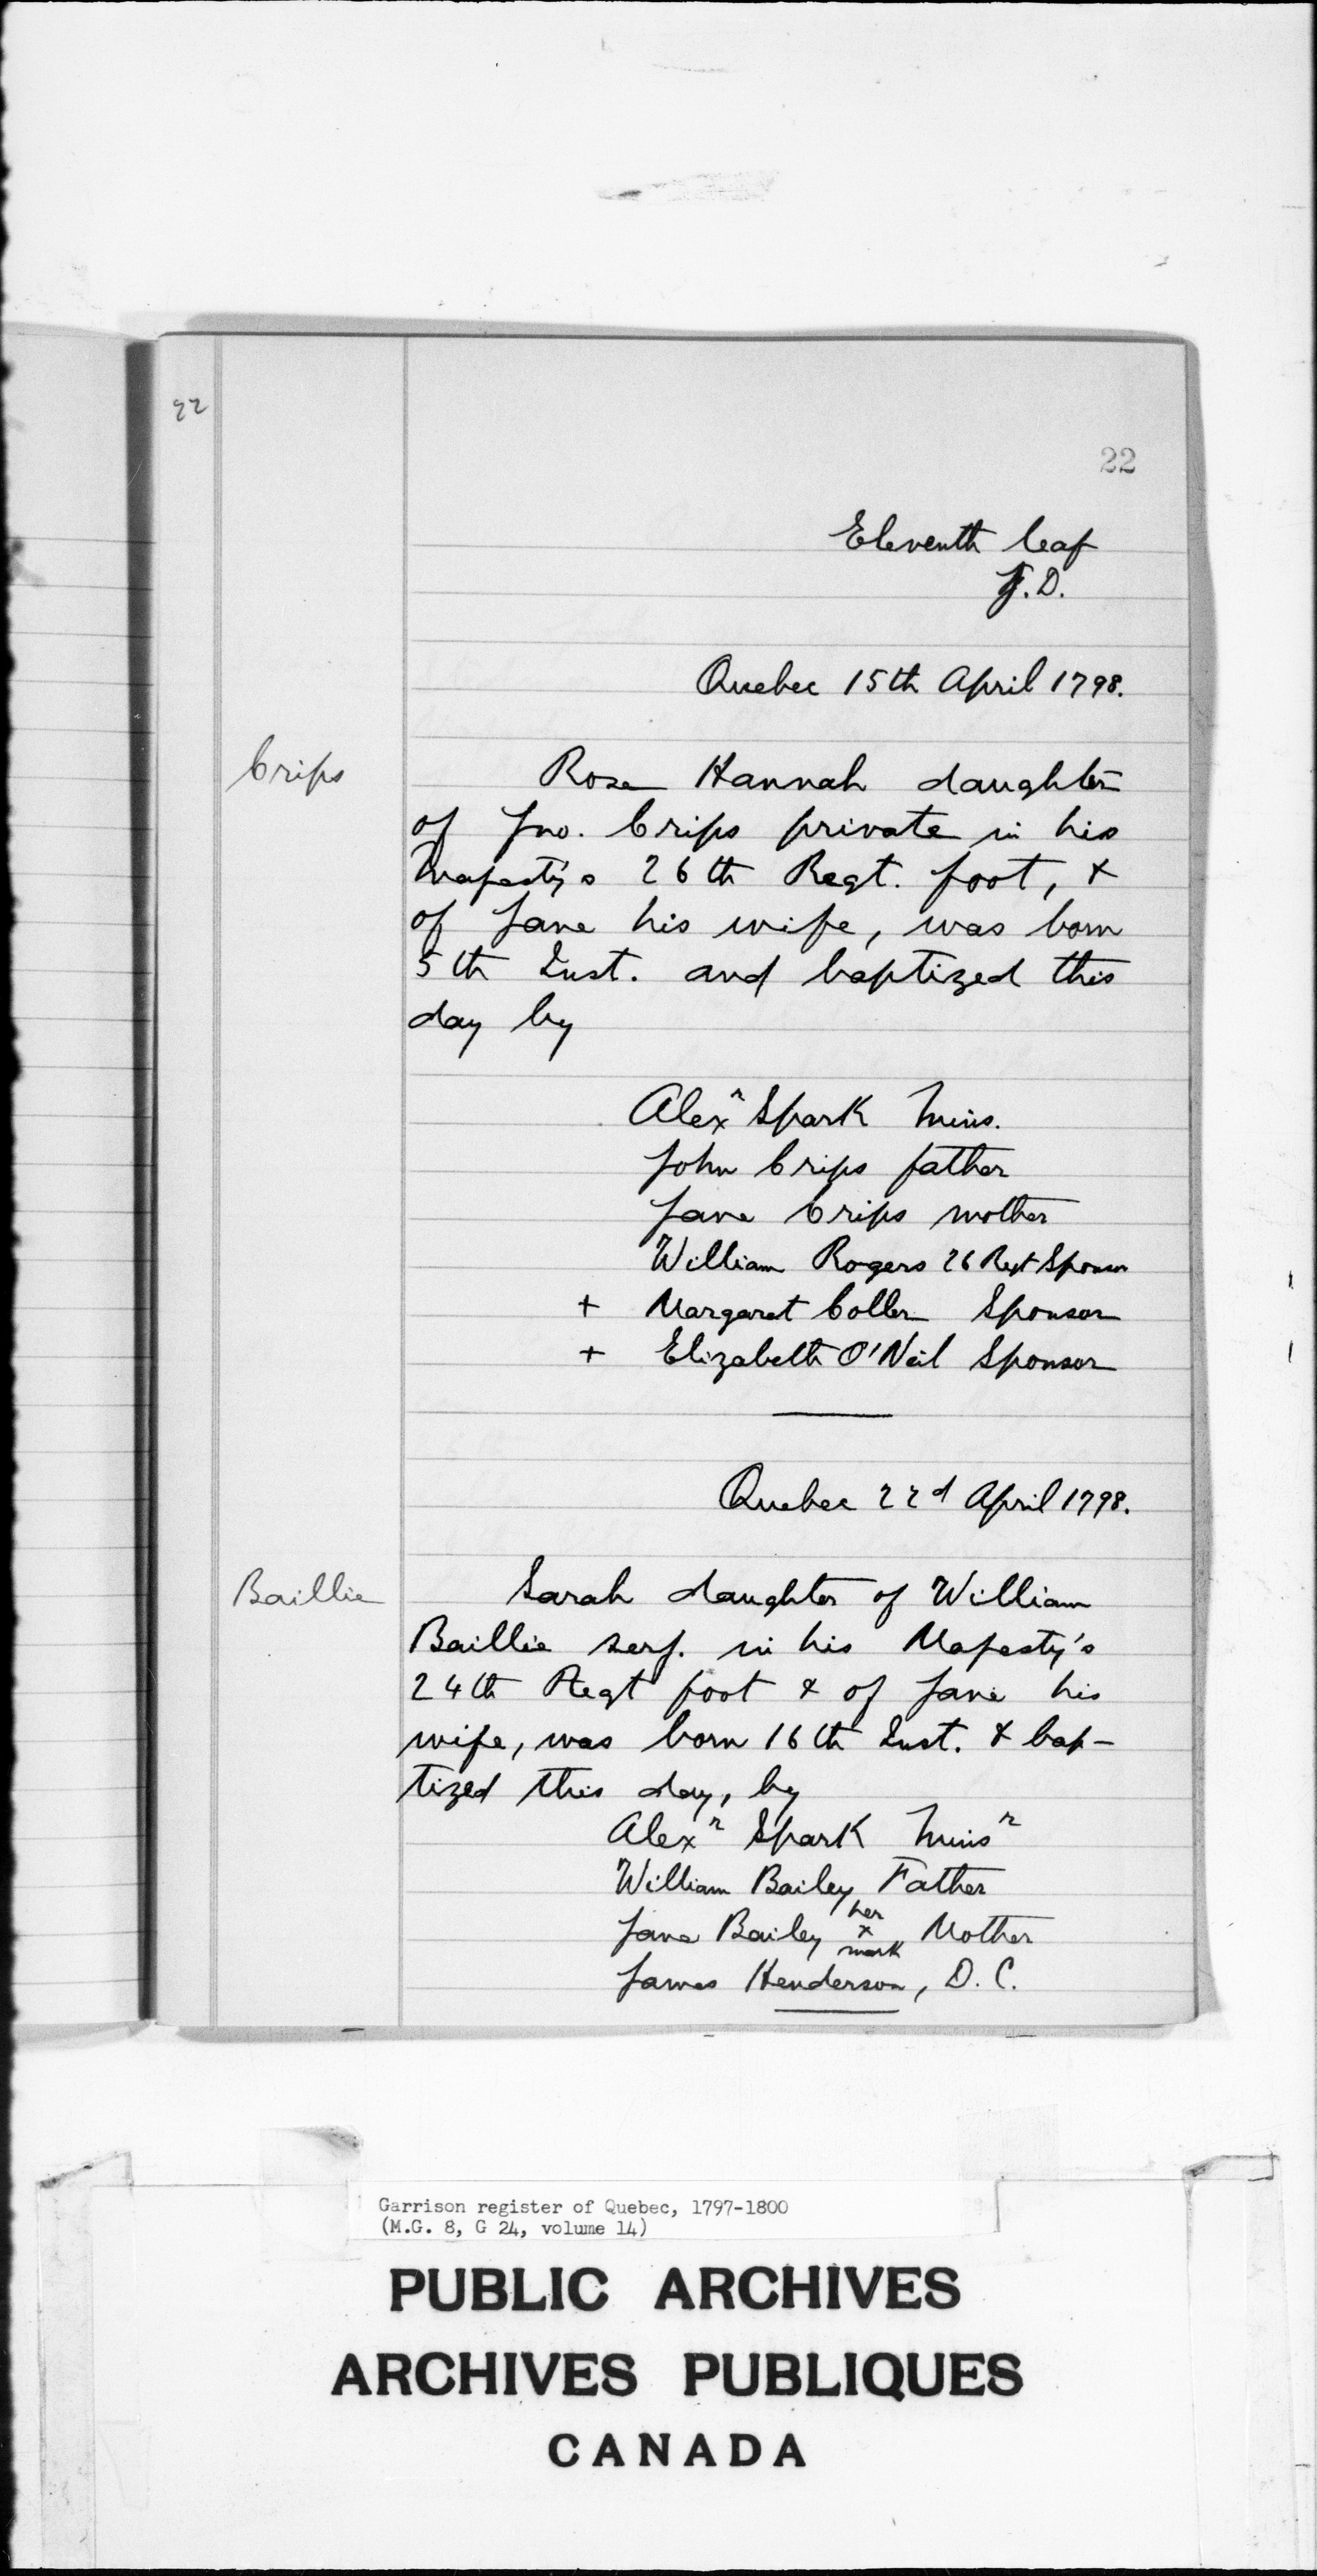 22
22
Eleventh leaf
J.D.
Quebec 15th April 1798.
Crips
Rose Hannah daughter
of Jno. Crips private in his
Majesty's 26th Regt. foot, &
of Jane his wife, was born
5th Inst. and baptized this
day by
Alexr Spark Minis.
John Crips father
Jane Crips mother
William Rogers 26 Regt Sponsor
+ Margaret Coller Sponsor
+ Elizabeth O'Neil Sponsor
Quebec 22d April 1798.
Baillie
Sarah daughter of William
Baillie serj. in his Majesty's
24th Regt foot & of Jane his
wife, was born 16th Inst. & bap-
tized this day, by
Alexr Spark Minisr
William Bailey Father
her
Jane Bailey x Mother
mark
James Henderson, D.C.
Garrison register of Quebec, 1797-1800
(M.G. 8, G 24, volume 14)
PUBLIC ARCHIVES
ARCHIVES PUBLIQUES
CANADA